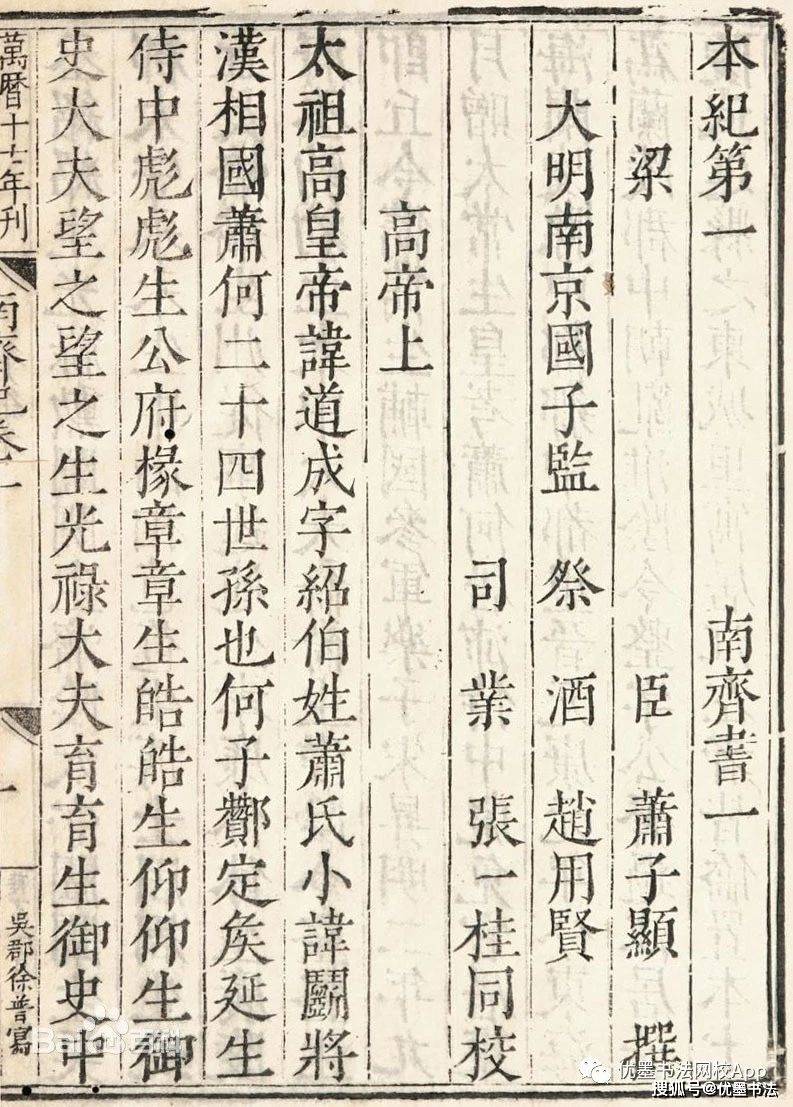 本紀第一 南齊書一
梁 臣 蕭子顯 撰
大明南京國子監 祭 酒 趙用賢
司 業 張一桂同校
高帝上
太祖高皇帝諱道成字紹伯姓蕭氏小諱鬭將
漢相國蕭何二十四世孫也何子酇定矦延生
侍中彪彪生公府掾章章生皓皓生仰仰生御
史大夫望之望之生光祿大夫育育生御史中
萬曆十七年刊
南齊紀卷一
一
吳郡徐普寫
Bai 百科
优墨书法网校App
搜狐号@优墨书法